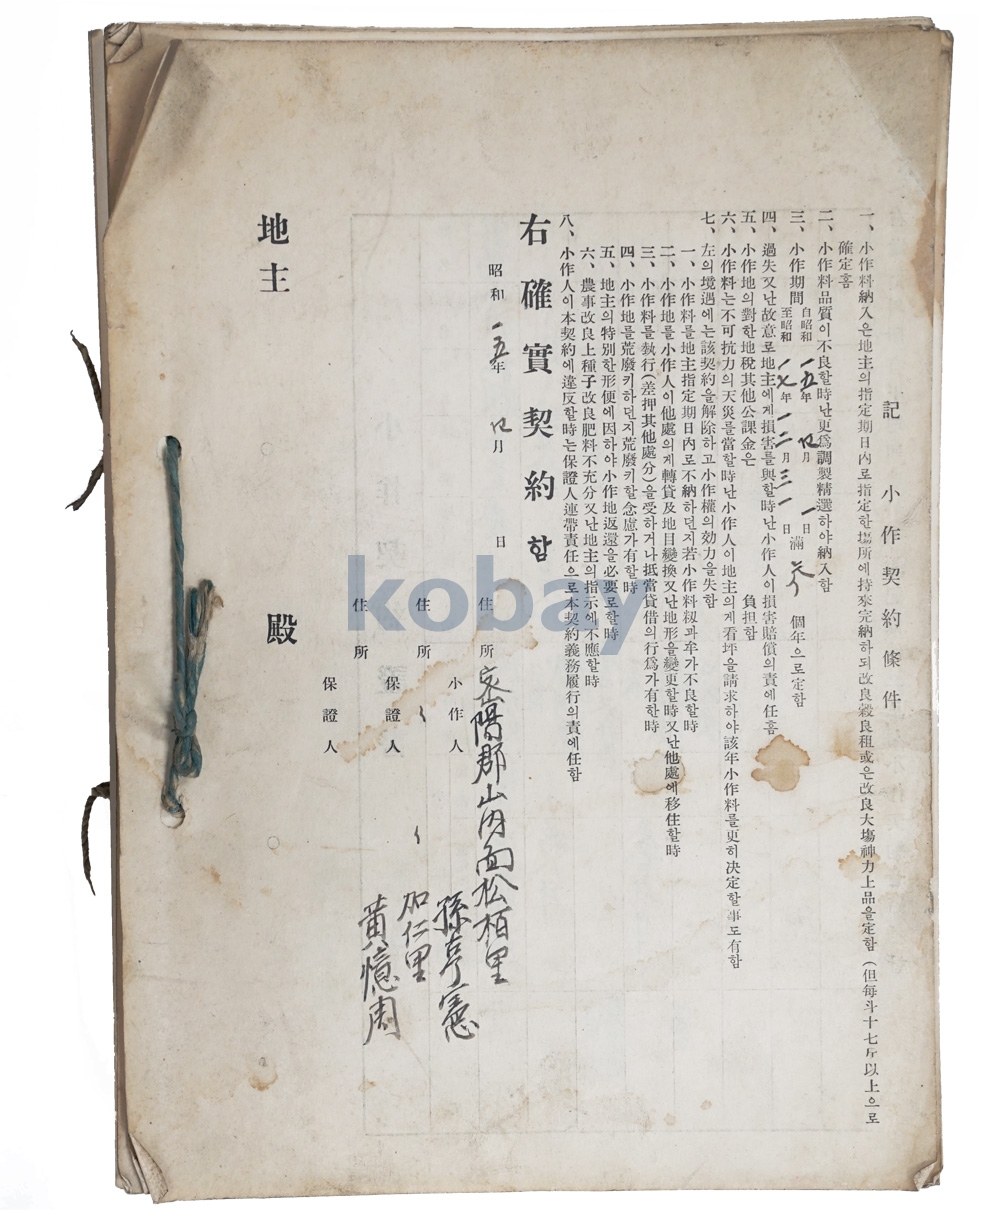 記　小作契約條件
一、小作料納入은地主의指定期日內로指定한場所에持來完納하되改良穀良租或은改良大場神力上品을定함(但每斗十七斤以上으로
確定홈
二、小作料品質이不良할時난更爲調製精選하야納入함
三、小作期間 自昭和一五年四月一日
至昭和一七年一二月三一日 滿 個年으로定함
四、過失又난故意로地主에게損害를與할時난小作人이損害賠償의責에任홈
五、小作地의對한地稅其他公課金은　負担함
六、小作料는不可抗力의天災를當할時난小作人이地主의게看坪을請求하야該年小作料를更히決定할事도有함
七、左의境遇에는該契約을解除하고小作權의効力을失함
一、小作料를地主指定期日內로不納하던지若小作料籾과牟가不良할時
二、小作地를小作人이他處의게轉貸及地目變換又난地形을變更할時又난他處에移住할時
三、小作料를執行(差押其他處分)을受하거나抵當貸借의行爲가有한時
四、小作地를荒廢키하던지荒廢키할念慮가有할時
五、地主의特別한形便에因하야小作地返還을必要로할時
六、農事改良上種子改良肥料不充分又난地主의指示에不應할時
八、小作人이本契約에違反할時는保證人連帶責任으로本契約義務履行의責에任함
右確實契約함
昭和一五年四月　日
住所 密陽郡山內面松柏里
小作人 孫亨憲
住所 〃 〃 加仁里
保證人 黃憶周
住所
保證人
地主　殿
kobay